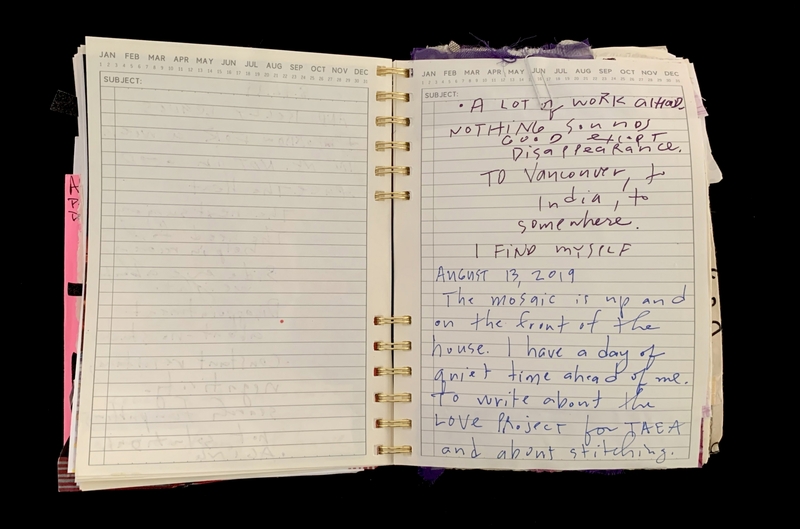 JAN FEB MAR APR MAY JUN JUL AUG SEP OCT NOV DEC
1 2 3 4 5 6 7 8 9 10 11 12 13 14 15 16 17 18 19 20 21 22 23 24 25 26 27 28 29 30 31
SUBJECT:
JAN FEB MAR APR MAY JUN JUL AUG SEP OCT NOV DEC
1 2 3 4 5 6 7 8 9 10 11 12 13 14 15 16 17 18 19 20 21 22 23 24 25 26 27 28 29 30 31
SUBJECT:
• A LOT of WORK AHEAD.
NOTHING SOUNDS
GOOD EXCEPT
DISAPPEARANCE.
TO Vancouver, to
India, to
somewhere.
I FIND MYSELF
AUGUST 13, 2019
The mosaic is up and
on the front of the
house. I have a day of
quiet time ahead of me.
To write about the
LOVE PROJECT for JAEA
and about stitching.